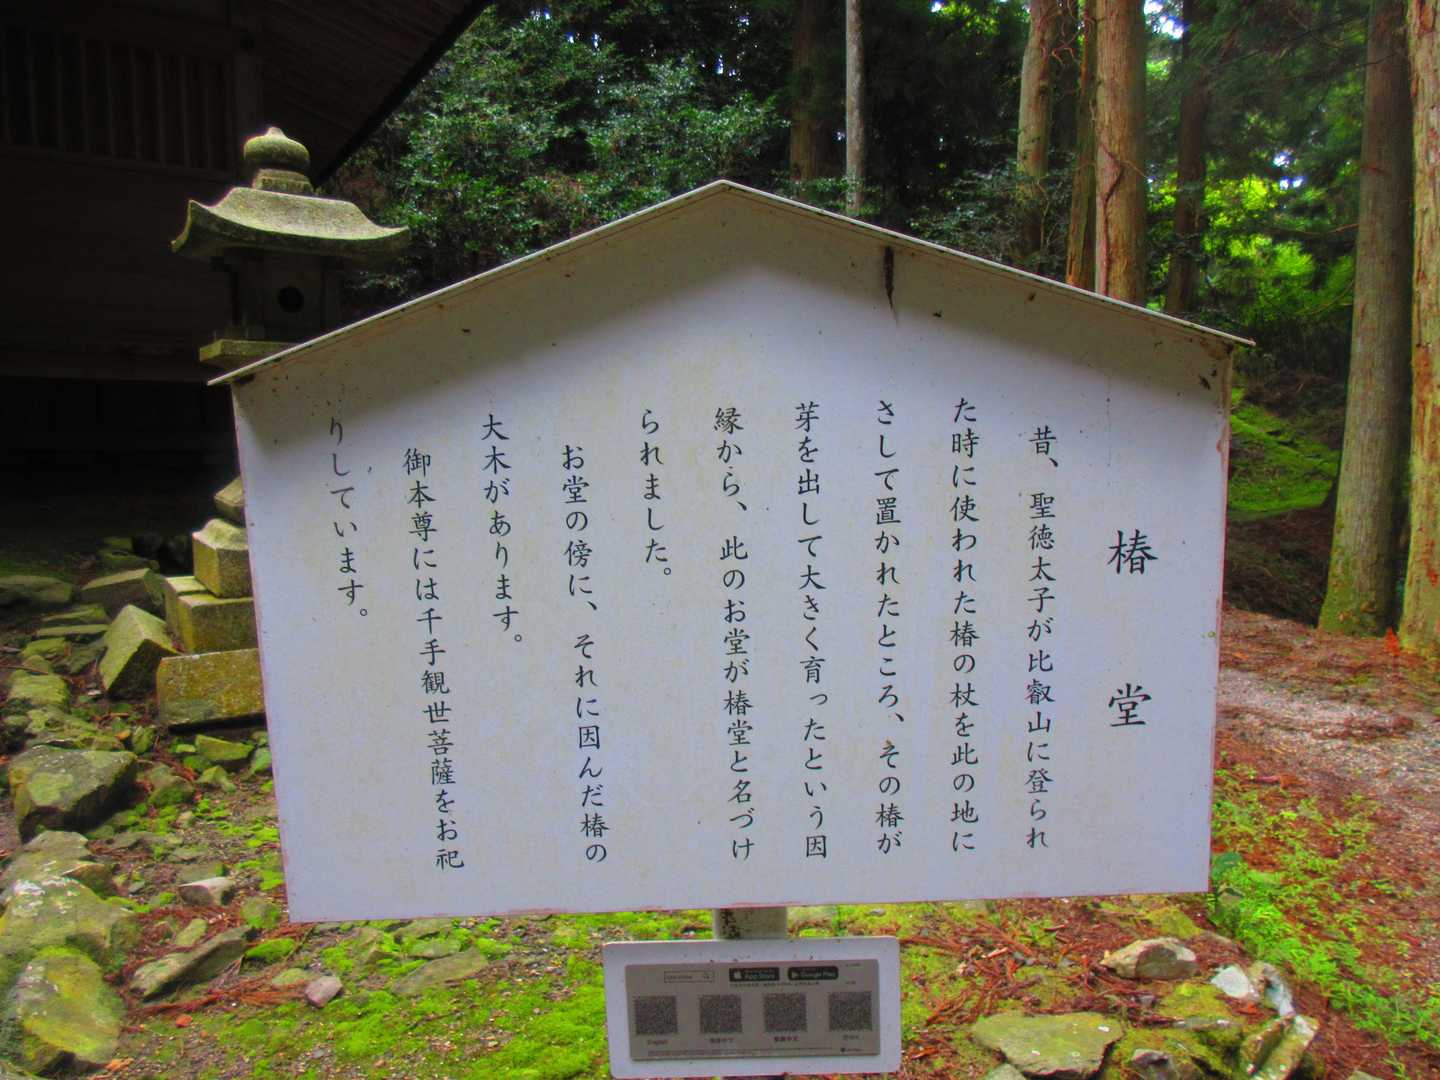 椿堂
昔、聖徳太子が比叡山に登られ
た時に使われた椿の杖を此の地に
さして置かれたところ、その椿が
芽を出して大きく育ったという因
縁から、此のお堂が椿堂と名づけ
られました。
お堂の傍に、それに因んだ椿の
大木があります。
御本尊には千手観世菩薩をお祀
りしています。
App Store
Google Play
English
简体中文
繁體中文
한국어